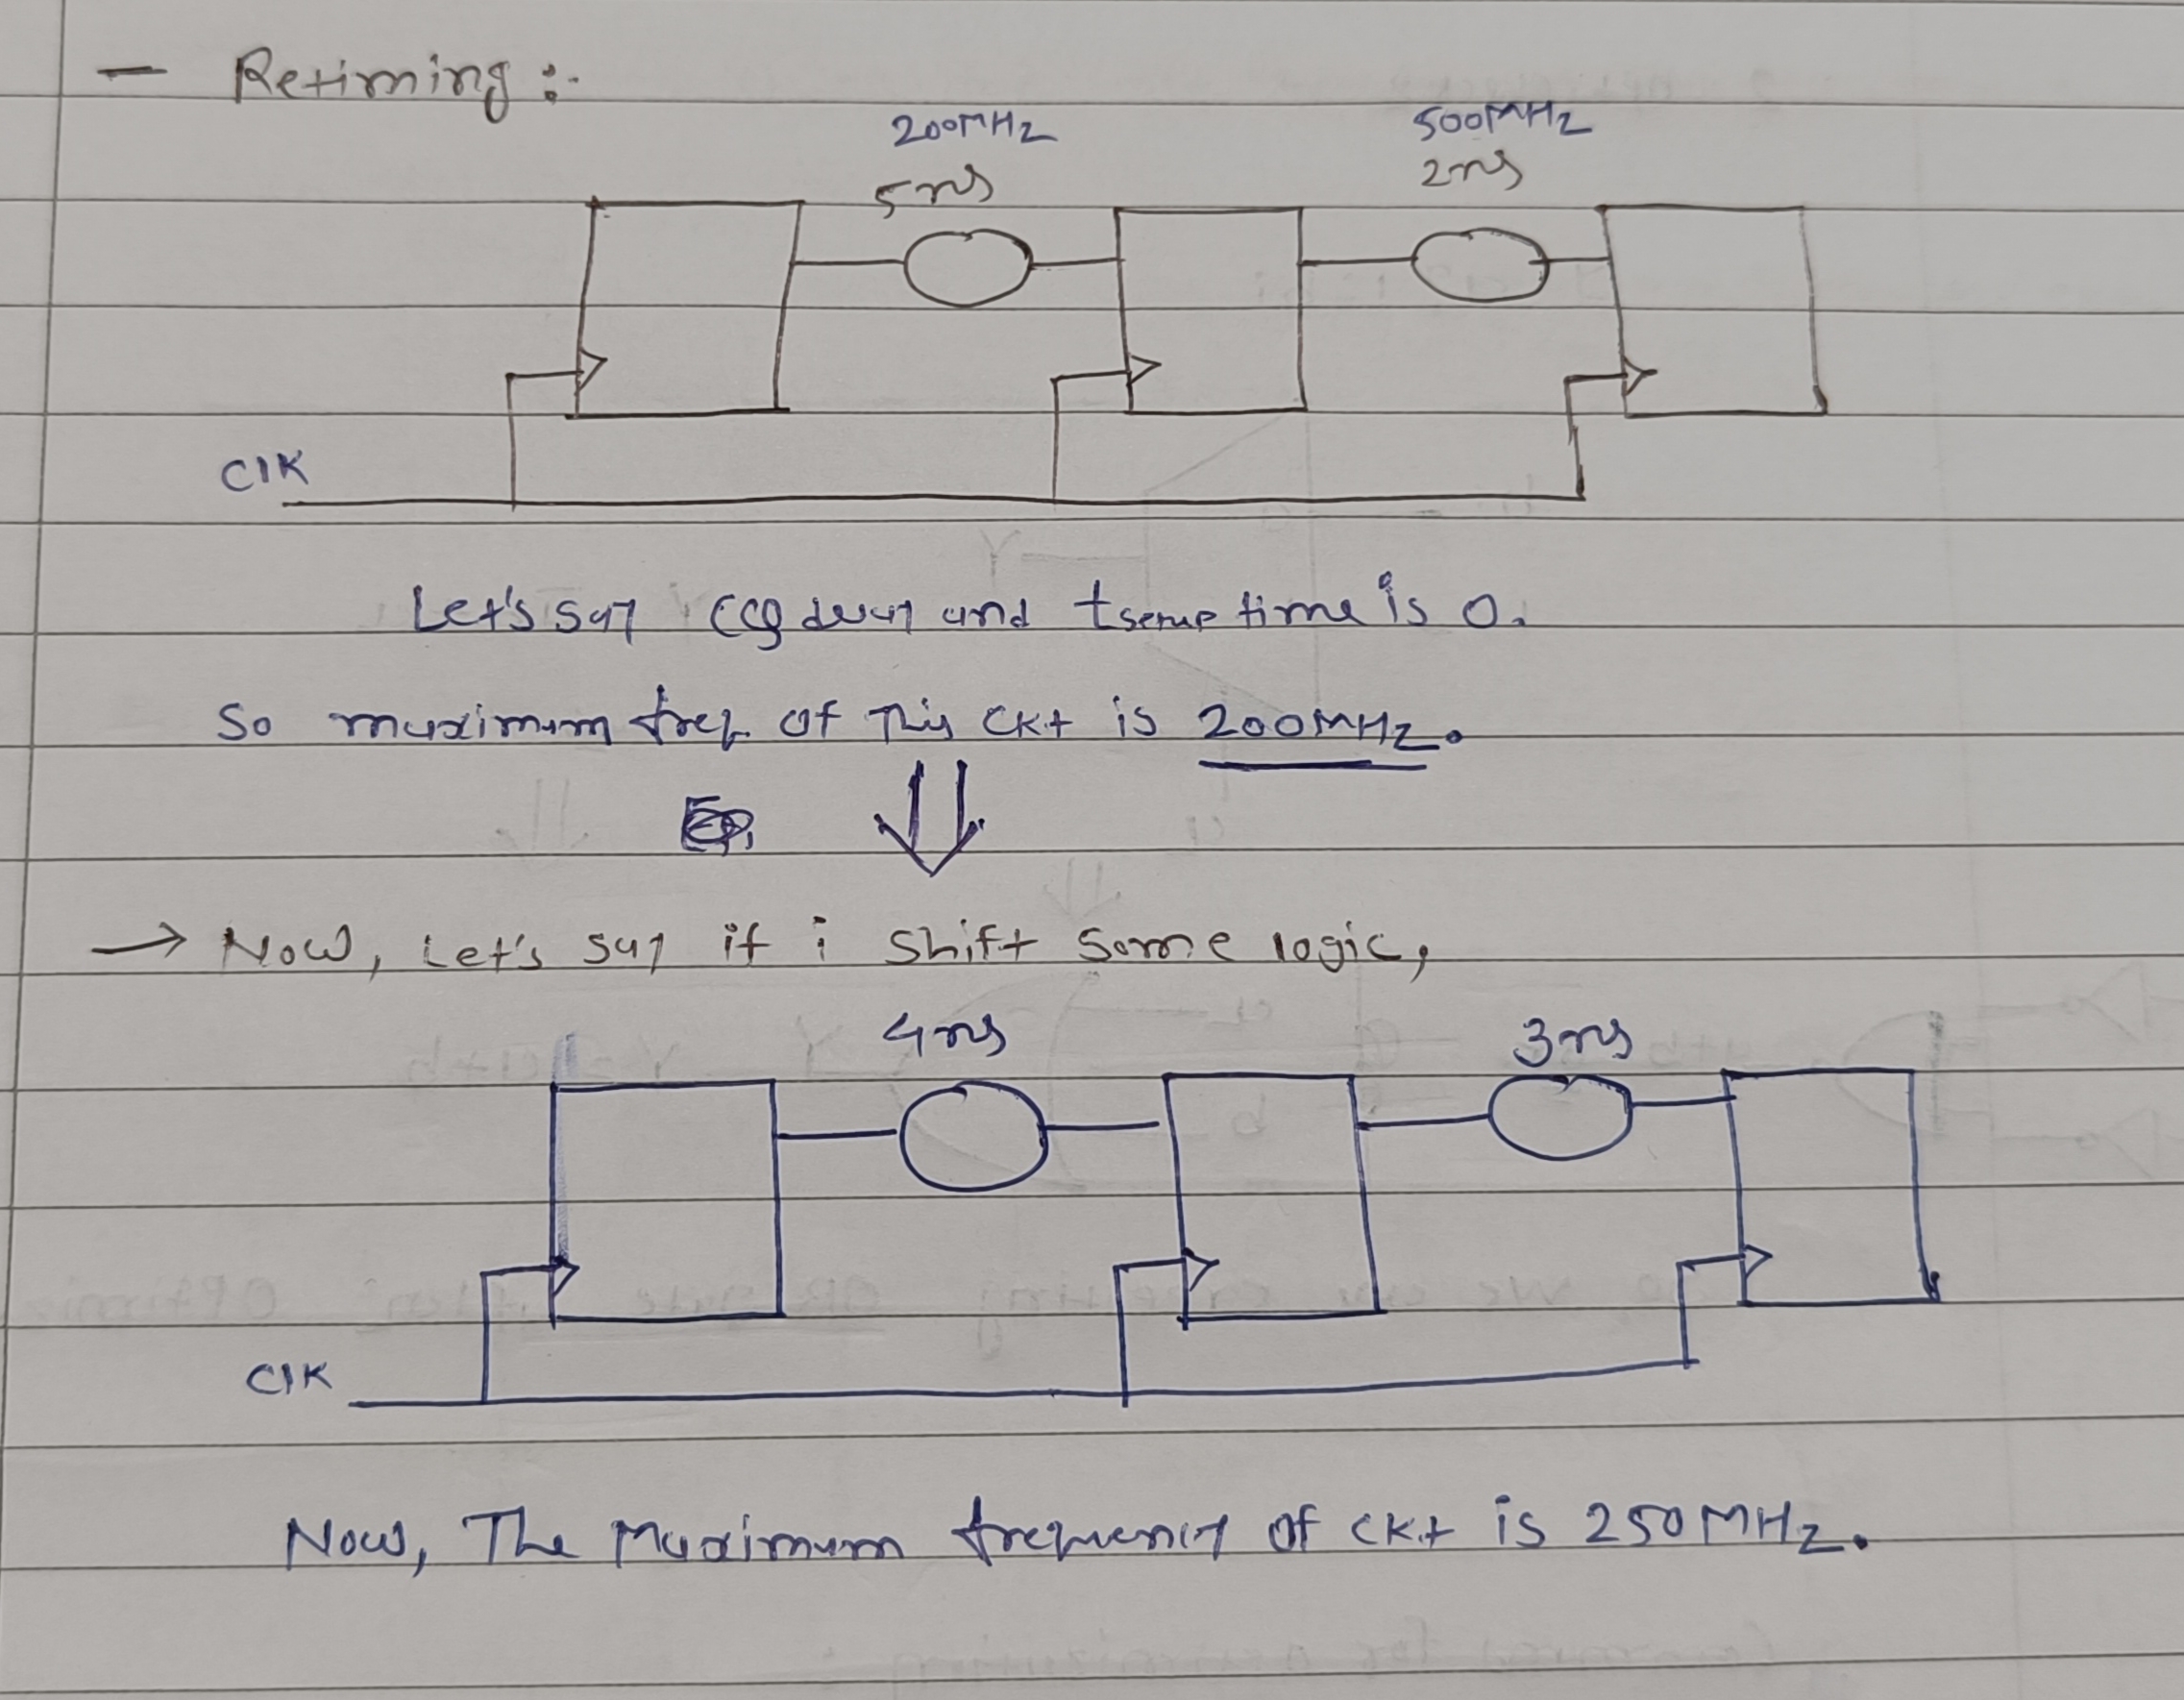 - Retiming :-
200MHz 500MHz
5ns 2ns
CLK
Let's say CCQ delay and tsetup time is 0.
So maximum freq. of this ckt is 200MHz.
→ Now, Let's say if i shift some logic,
4ns 3ns
CLK
Now, The Maximum frequency of ckt is 250MHz.